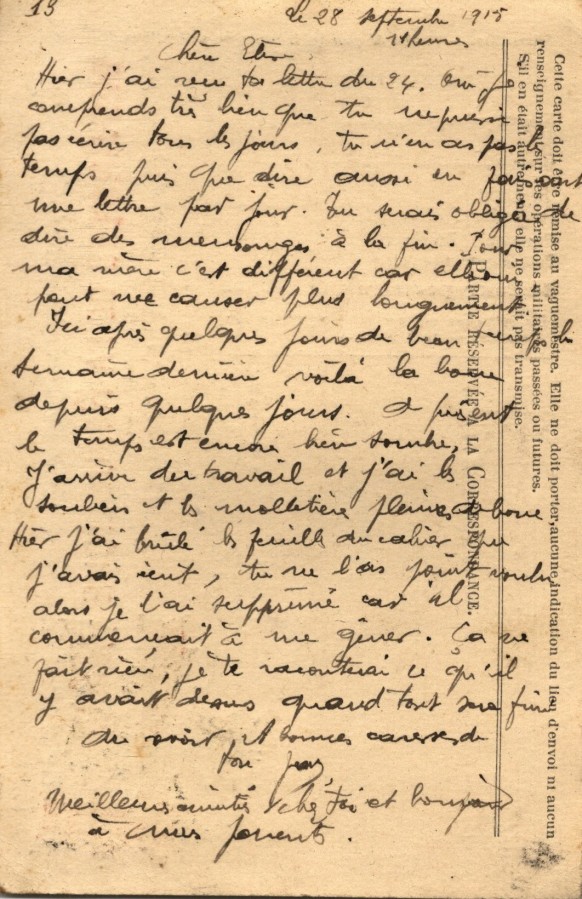 13
le 28 septembre 1915
Chère
Hier j'ai reçu ta lettre du 24. Oui je
comprends très bien que tu ne puisses
pas écrire tous les jours, tu n'en as pas le
temps puis que dire aussi en faisant
une lettre par jour. Tu serais obligée de
dire des mensonges à la fin. Pour
ma mère c'est différent car elle
peut me causer plus longuement
Ici après quelques jours de beau temps la
semaine dernière voilà la boue
depuis quelques jours. A présent
le temps est encore bien sombre,
J'arrive du travail et j'ai les
souliers et les molletière pleines de boue
Hier j'ai brûlé les feuilles du cahier que
j'avais écrit, tu ne l'as point voulu
alors je l'ai supprimé car il
commencait à me gêner. Ça ne
fait rien, je te raconterai ce qu'il
y avait dessus quand tout sera fini
douces caresses de
ton Jean
Meilleures amitiés chez toi et bonjour
à mes parents.
Cette carte doit être remise au vaguemestre. Elle ne doit porter aucune indication du lieu d'envoi ni aucun
renseignement sur les opérations militaires passées ou futures.
S'il en était autrement, elle ne serait pas transmise.
PARTIE RÉSERVÉE A LA CORRESPONDANCE.